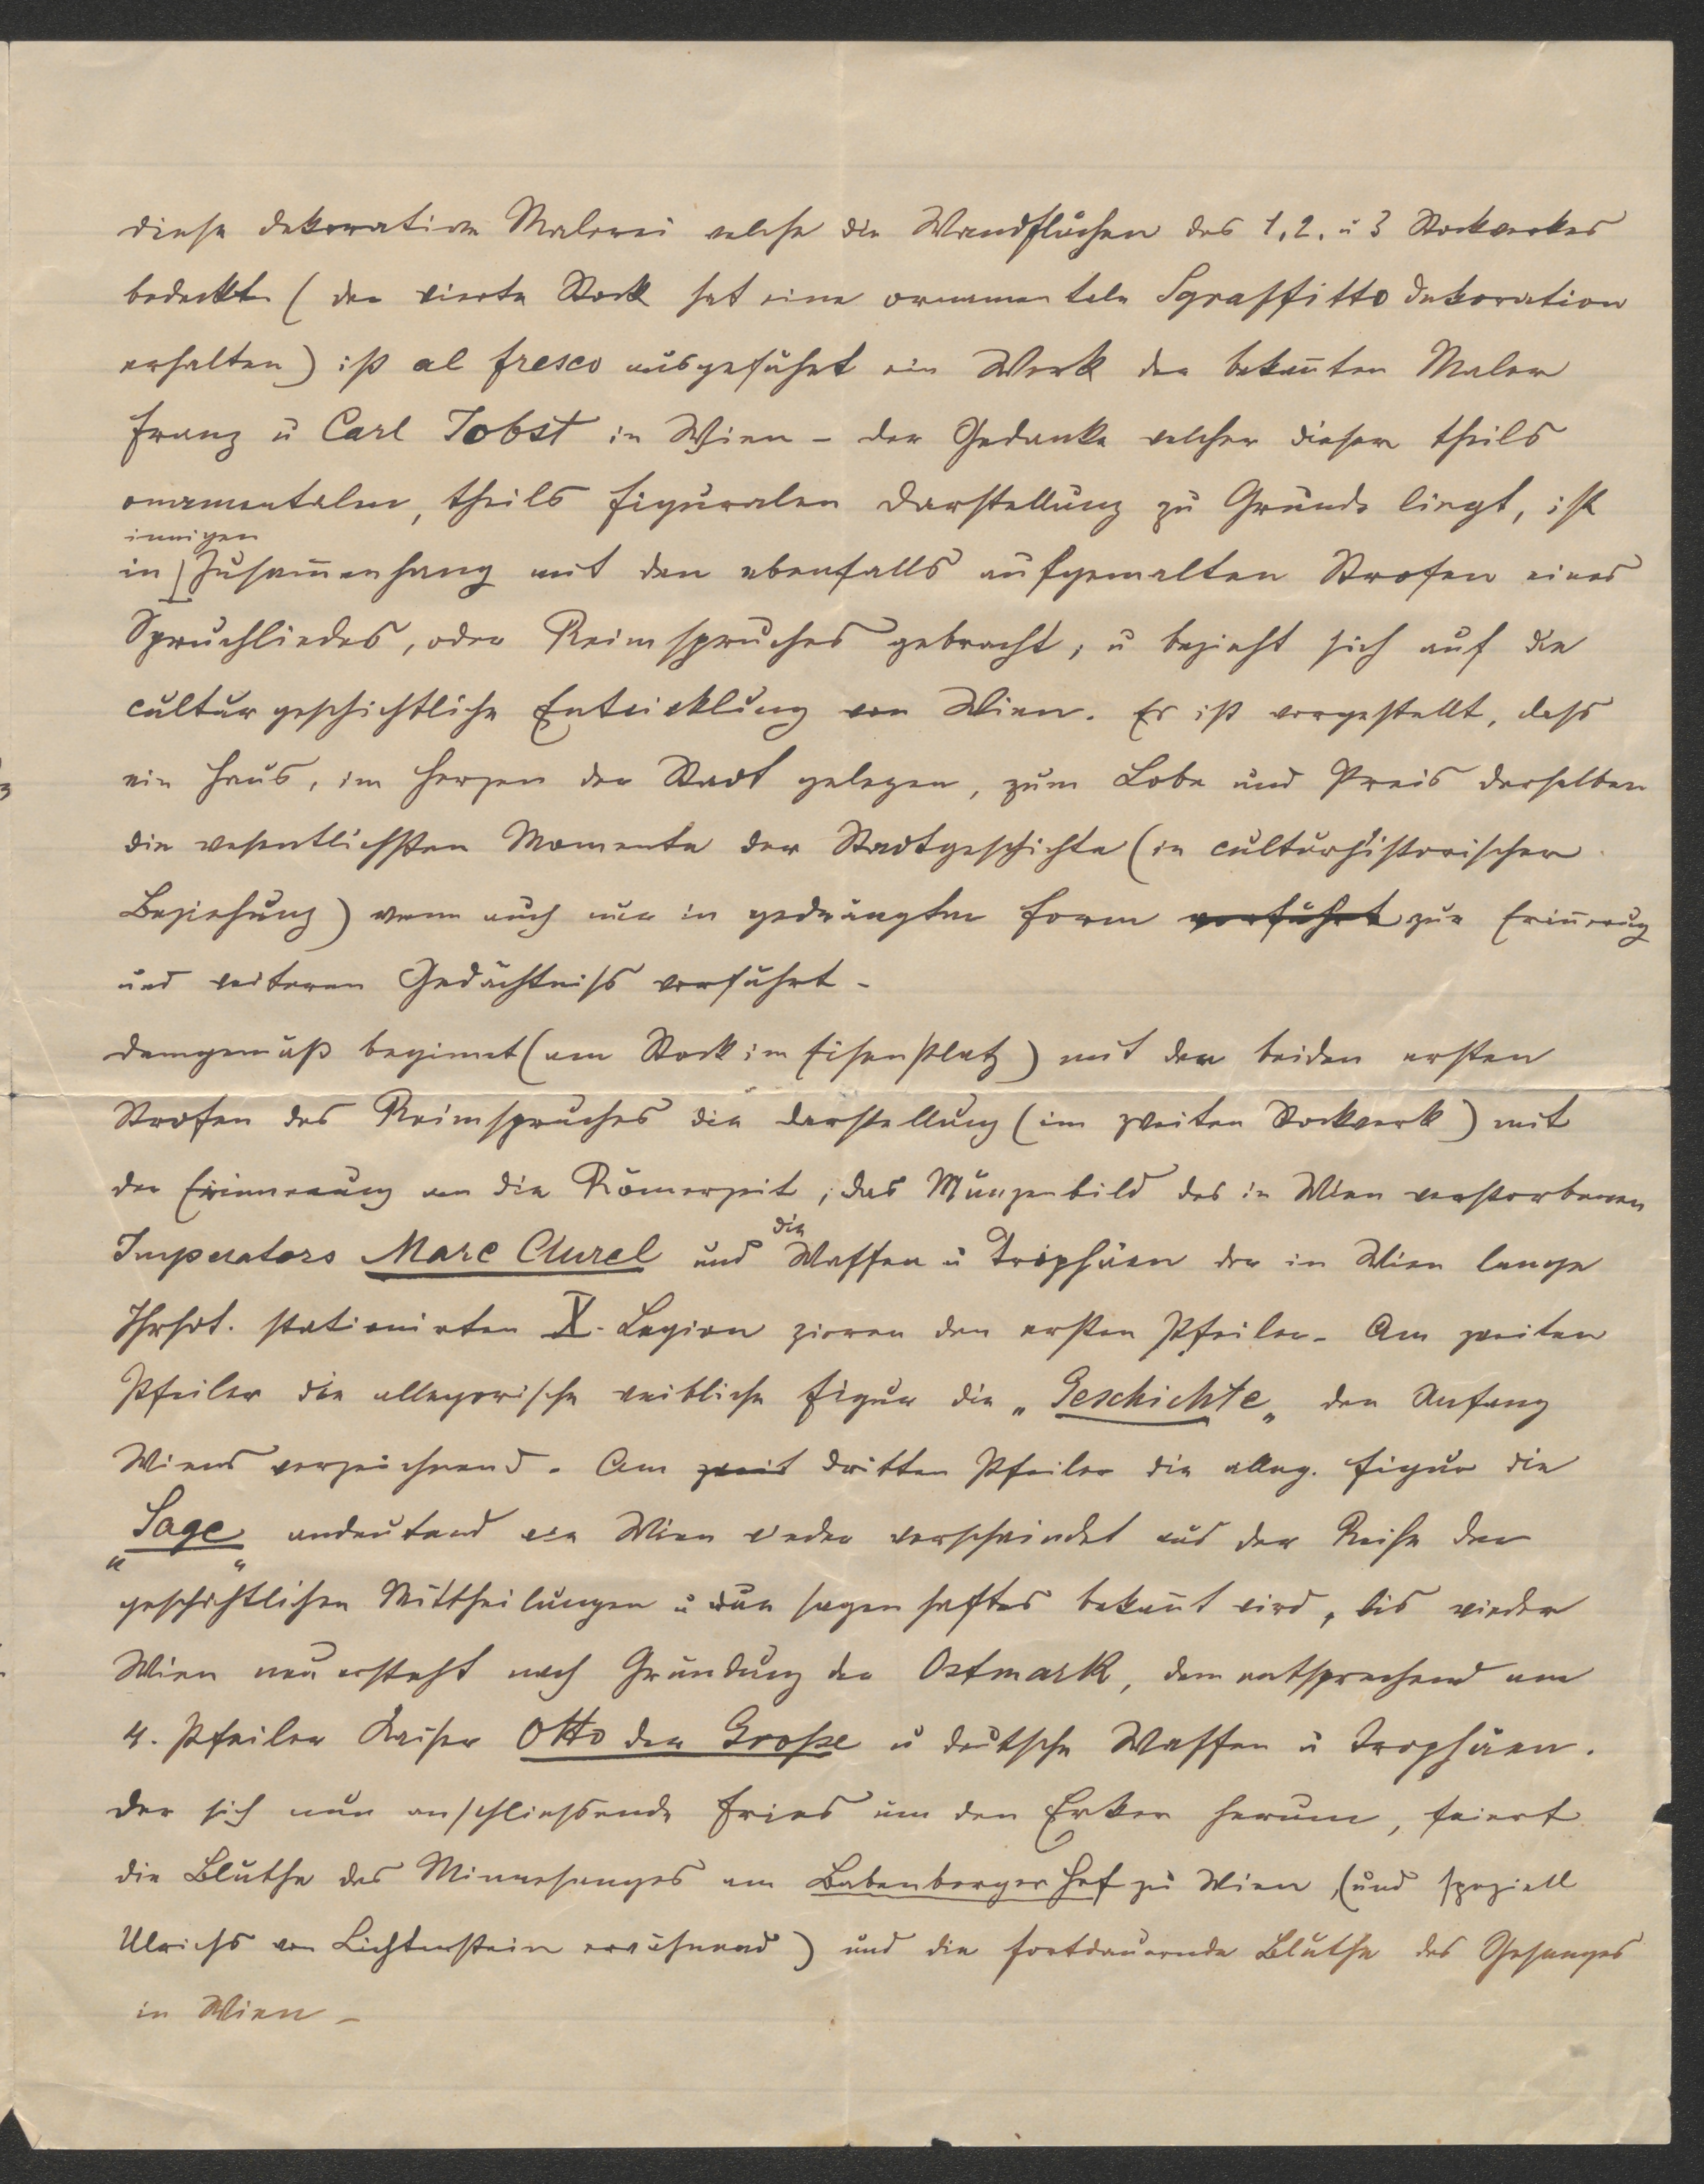 diese dekorative Malerei welche die Wandflächen des 1, 2. u 3 Stockwerkes
bedeckt (der vierte Stock hat eine ornamentale Sgraffitto dekoration
erhalten) ist al fresco ausgeführt ein Werk der bekañten Maler
Franz u Carl Jobst in Wien – der Gedanke welcher dieser theils
ornamentalen, theils figuralen Darstellung zu Grunde liegt, ist
innigen
in Zusam̄enhang mit den ebenfalls aufgemalten Strofen eines
Spruchliedes, oder Reimspruches gebracht, u bezieht sich auf die
culturgeschichtliche Entwicklung von Wien. Es ist vorgestellt, dass
ein Haus, im Herzen der Stadt gelegen, zum Lobe und Preis derselben
die wesentlichsten Momente der Stadtgeschichte (in culturhistorischer
Beziehung) wenn auch nur in gedrängter Form vorführt zur Eriñerung
und weiteren Gedächtniss vorführt –
demgemäß beginnt (am Stock im Eisenplatz) mit den beiden ersten
Strofen des Reimspruches die Darstellung (im zweiten Stockwerk) mit
der Erinnerung an die Römerzeit, das Münzenbild des in Wien verstorbenen
die
Imperators Marc Aurel und Waffen u Trophäen der in Wien lange
Jhrhdt. stationirten X. Legion zieren den ersten Pfeiler – Am zweiten
Pfeiler die allegorische weibliche Figur die „Geschichte„ den Anfang
Wiens verzeichnend. Am zweit dritten Pfeiler die alleg. Figur die
„Sage„ andeutend wie Wien wieder verschwindet aus der Reihe der
geschichtlichen Mittheilungen u nur sagenhaftes bekañt wird, bis wieder
Wien neu ersteht nach Gründung der Ostmark, dem entsprechend am
4. Pfeiler Kaiser Otto der Große u deutsche Waffen u Trophäen.
der sich nun anschliessende Fries um den Erker herum, feiert
die Blüthe des Minnesanges am Babenberger Hof zu Wien, (und speziell
Ulrichs von Lichtenstein erwähnend) und die fortdauernde Blüthe des Gesanges
in Wien –